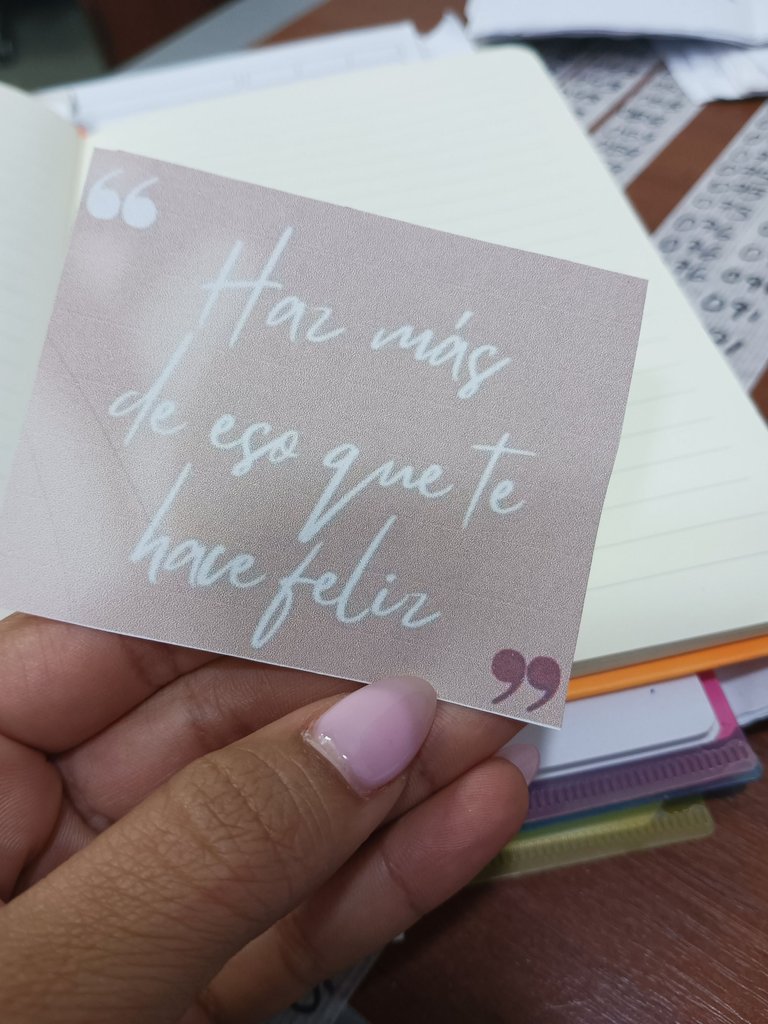 “
Haz más
de eso que te
hace feliz
”